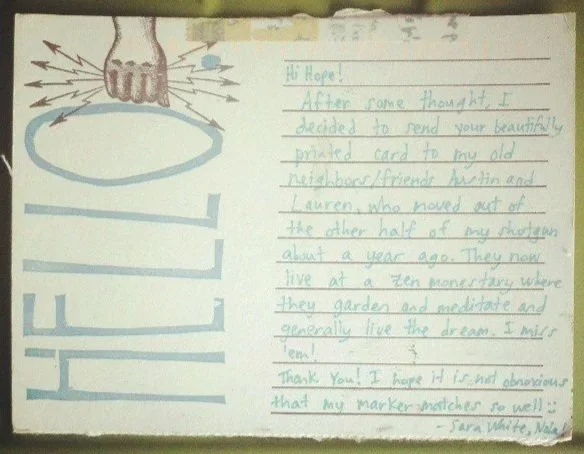 HELLO
Hi Hope!
After some thought, I
decided to send your beautifully
printed card to my old
neighbors/friends Austin and
Lauren, who moved out of
the other half of my shotgun
about a year ago. They now
live at a zen monestary where
they garden and meditate and
generally live the dream. I miss
'em!
Thank You! I hope it is not obnoxious
that my marker matches so well :)
- Sara White, Nola!